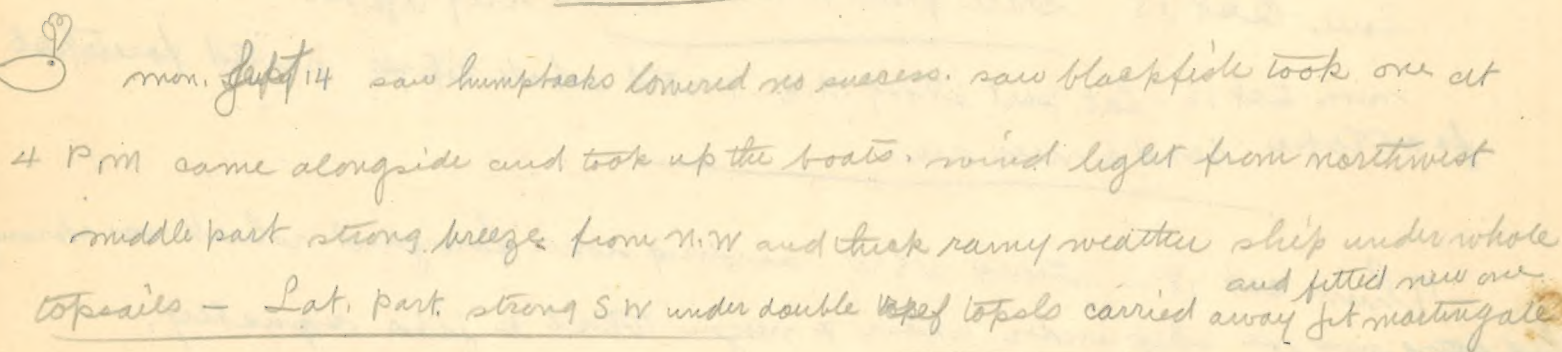 mon. Sept 14 saw humpbacks lowered no success. saw blackfish took one at
4 P.M came alongside and took up the boats. wind light from northwest
middle part strong breeze from N.W and thick rainy weather ship under whole
and fitted new one
topsails — Lat. part. strong S W under double reef topsls carried away jib martingale